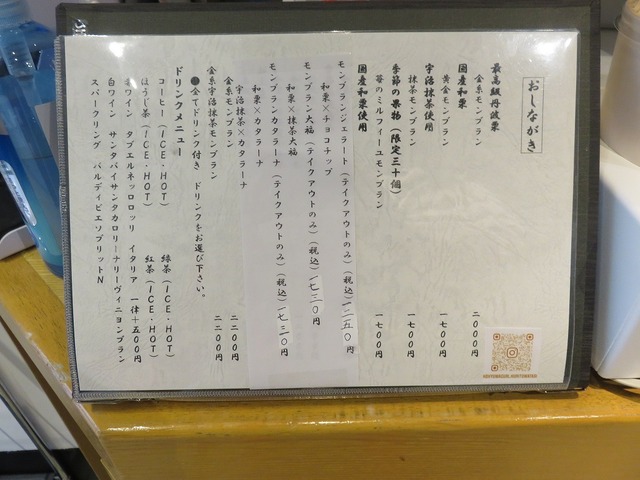 おしながき
最高級丹波栗
金糸モンブラン 二〇〇〇円
国産和栗
黄金モンブラン 一七〇〇円
宇治抹茶使用
抹茶モンブラン 一七〇〇円
季節の果物（限定三十個）
苺のミルフィーユモンブラン 一七〇〇円
国産和栗使用
モンブランジェラート（テイクアウトのみ）（税込）一二五〇円
和栗×チョコチップ
モンブラン大福（テイクアウトのみ）（税込）一七三〇円
和栗×抹茶大福
モンブランカタラーナ（テイクアウトのみ）（税込）一七三〇円
和栗×カタラーナ
宇治抹茶×カタラーナ
金糸モンブラン 二二〇〇円
金糸宇治抹茶モンブラン 二二〇〇円
●全てドリンク付き ドリンクをお選び下さい。
ドリンクメニュー
コーヒー（ICE・HOT） 緑茶（ICE・HOT）
ほうじ茶（ICE・HOT） 紅茶（ICE・HOT）
赤ワイン タブエルネッロロッソ イタリア 一律＋五〇〇円
白ワイン サンタバイサンタカロリーナソーヴィニヨンブラン
スパークリング バルディビエソブリットN